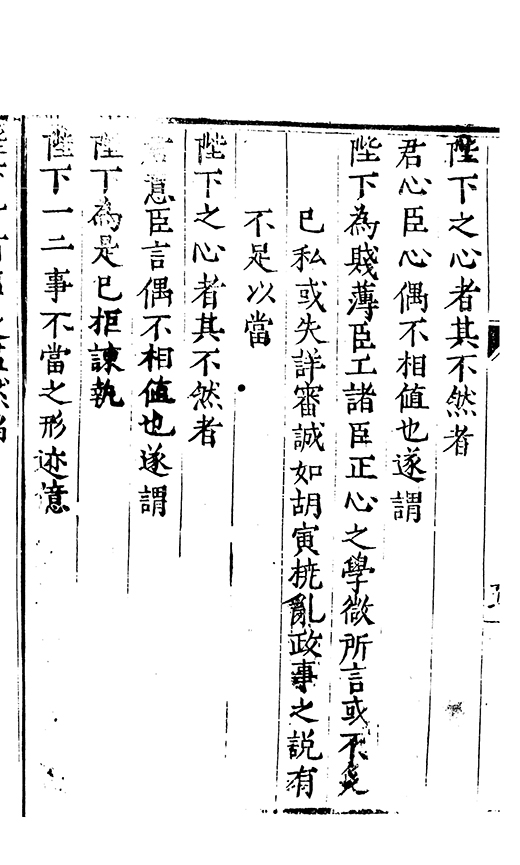 陛下之心者其不然者
君心臣心偶不相值也遂謂
陛下為賤薄臣工諸臣正心之學微所言或不免
己私或失詳審誠如胡寅撓亂政事之說有
不足以當
陛下之心者其不然者
君意臣言偶不相值也遂謂
陛下為是已拒諫執
陛下一二事不當之形迹憶